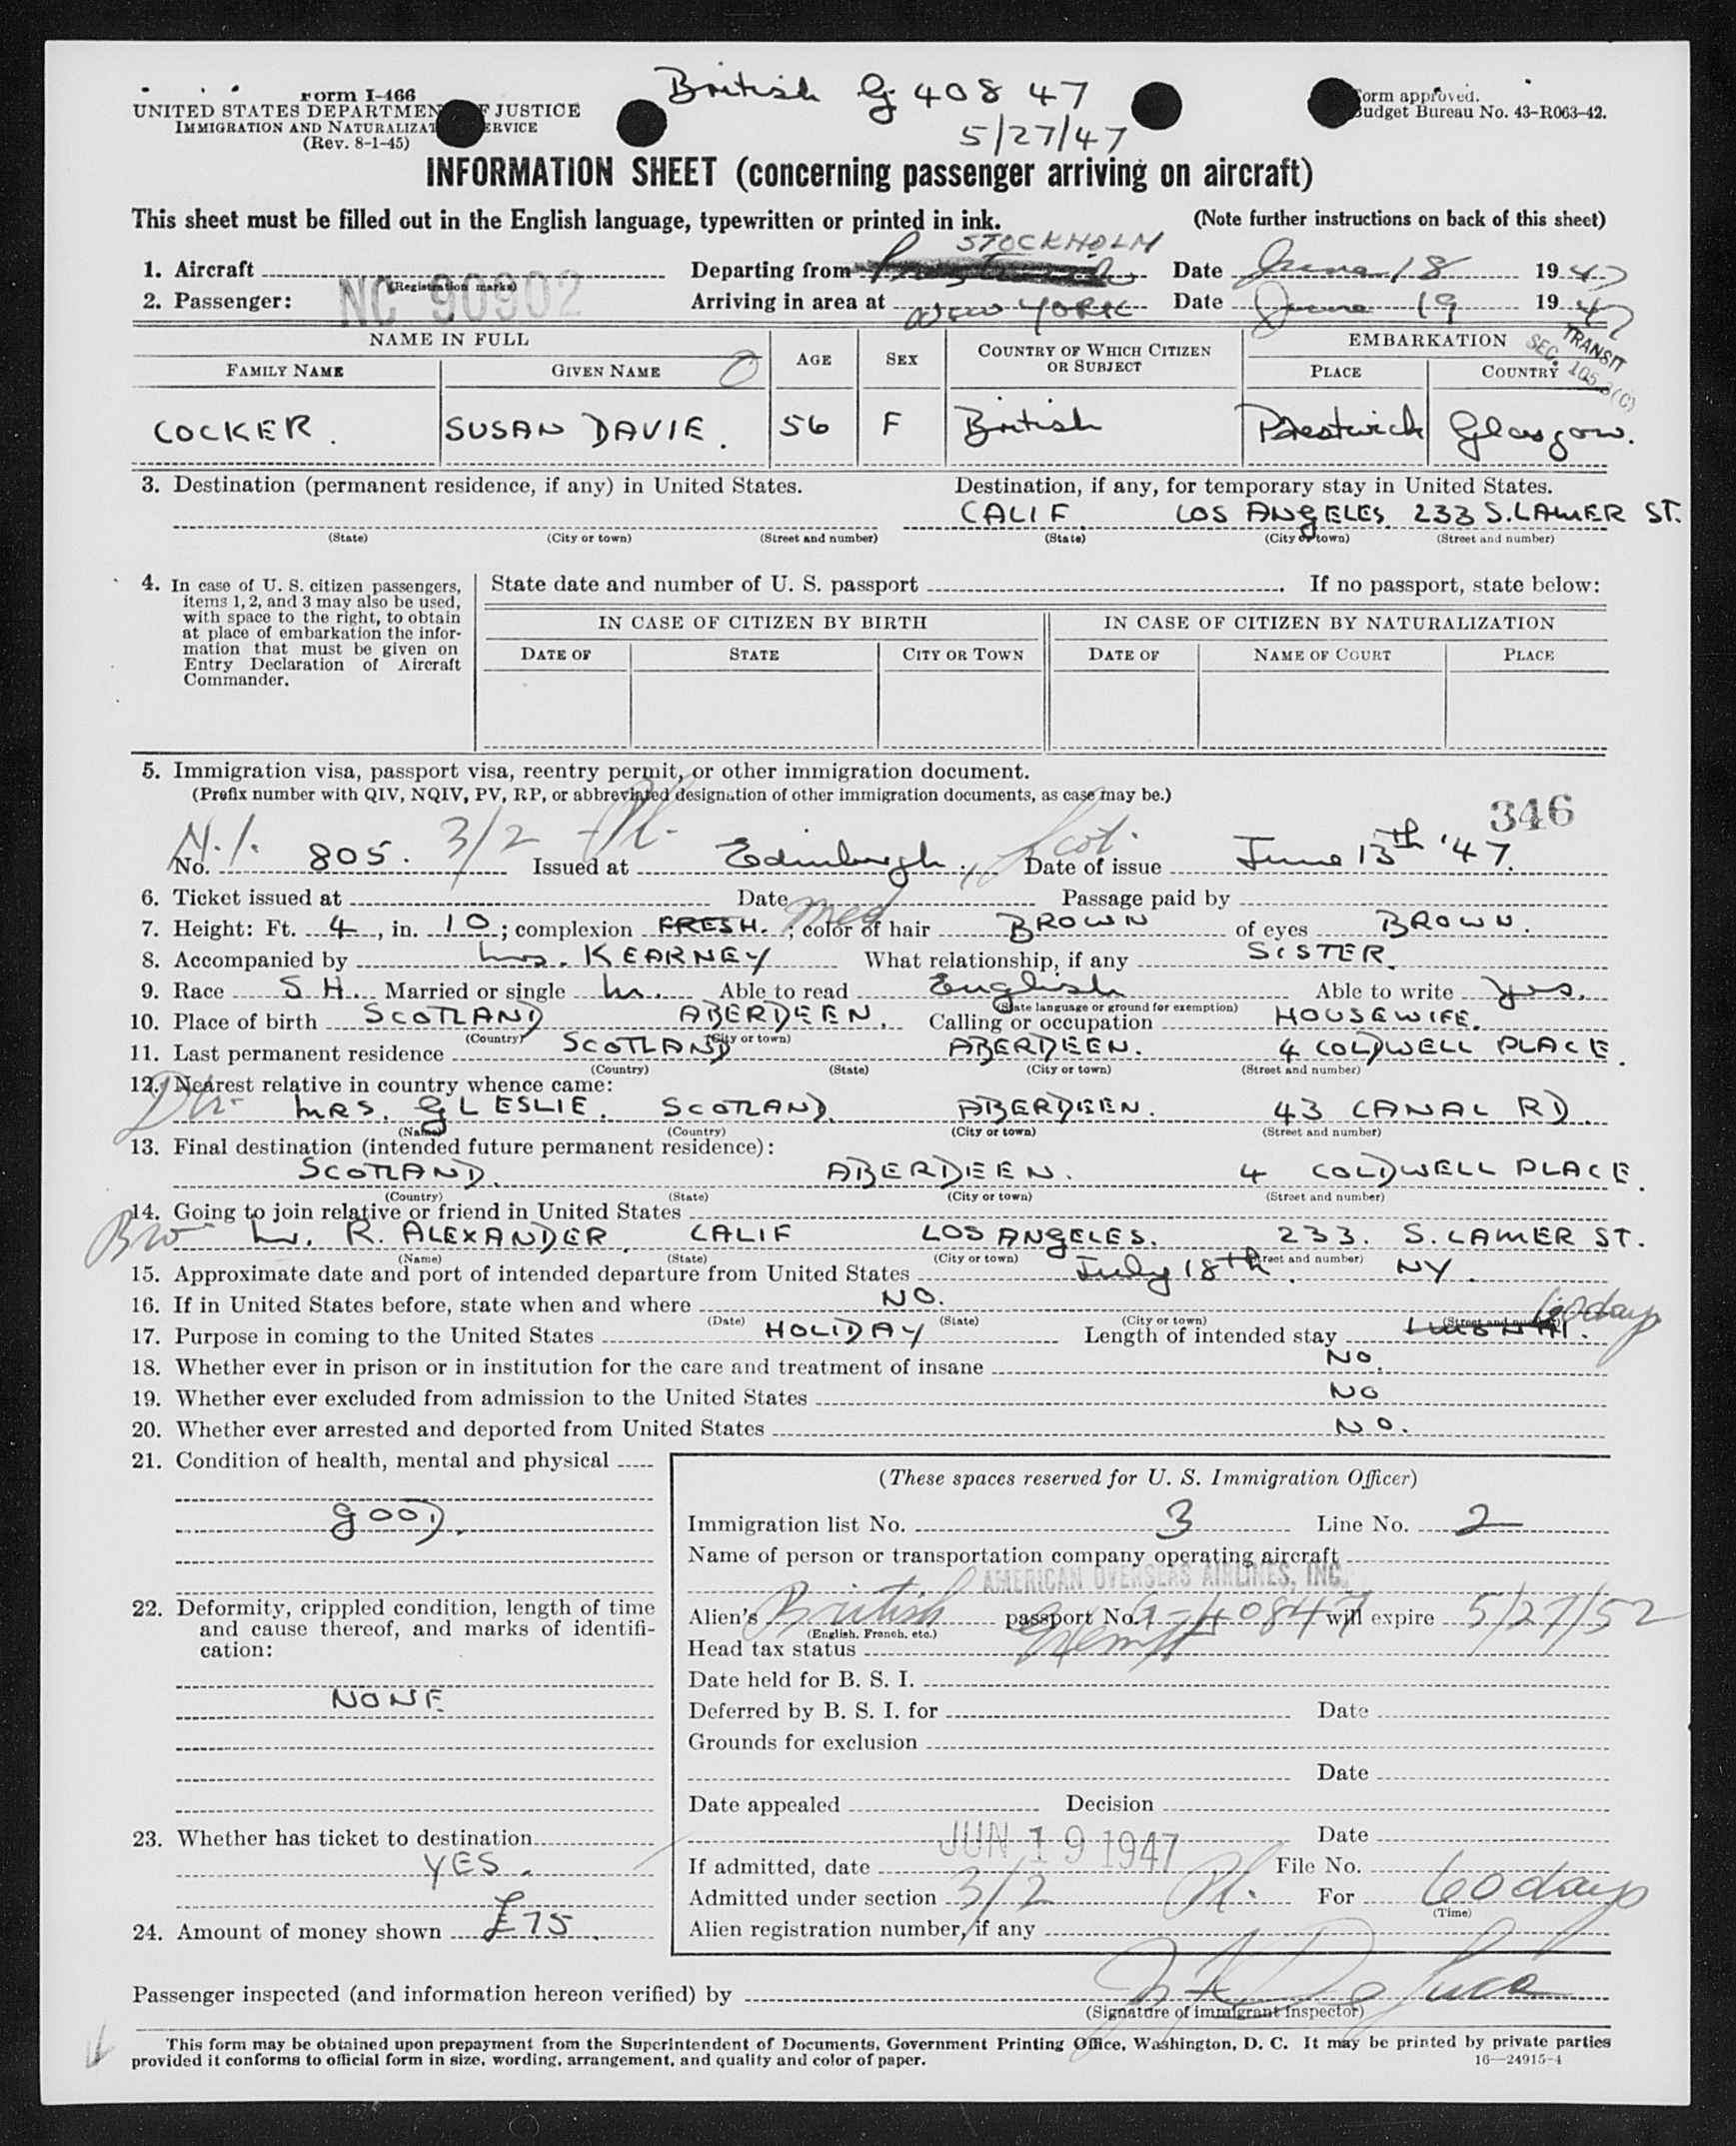 Form I-466
UNITED STATES DEPARTMENT OF JUSTICE
IMMIGRATION AND NATURALIZATION SERVICE
(Rev. 8-1-45)
British G 408 47
5/27/47
Form approved.
Budget Bureau No. 43-R063-42.
INFORMATION SHEET (concerning passenger arriving on aircraft)
This sheet must be filled out in the English language, typewritten or printed in ink. (Note further instructions on back of this sheet)
STOCKHOLM
1. Aircraft NC 90902 (Registration marks) Departing from Date June 18 1947
2. Passenger: Arriving in area at NEW YORK Date June 19 1947
TRANSIT
SEC. 105.3(C)
NAME IN FULL AGE SEX COUNTRY OF WHICH CITIZEN OR SUBJECT EMBARKATION
FAMILY NAME GIVEN NAME PLACE COUNTRY
COCKER. SUSAN DAVIE. 56 F British Prestwick Glasgow.
3. Destination (permanent residence, if any) in United States. Destination, if any, for temporary stay in United States.
CALIF. LOS ANGELES 233 S. LAMER ST.
(State) (City or town) (Street and number) (State) (City or town) (Street and number)
4. In case of U. S. citizen passengers, items 1, 2, and 3 may also be used, with space to the right, to obtain at place of embarkation the information that must be given on Entry Declaration of Aircraft Commander.
State date and number of U. S. passport . If no passport, state below:
IN CASE OF CITIZEN BY BIRTH IN CASE OF CITIZEN BY NATURALIZATION
DATE OF STATE CITY OR TOWN DATE OF NAME OF COURT PLACE
5. Immigration visa, passport visa, reentry permit, or other immigration document.
(Prefix number with QIV, NQIV, PV, RP, or abbreviated designation of other immigration documents, as case may be.)
346
No. 805. 3/2 Issued at Edinburgh, Scot. Date of issue June 13th '47.
6. Ticket issued at Date Passage paid by
7. Height: Ft. 4, in. 10; complexion FRESH. med; color of hair BROWN of eyes BROWN.
8. Accompanied by Mrs. KEARNEY What relationship, if any SISTER.
9. Race S H. Married or single M. Able to read English Able to write Yes.
(State language or ground for exemption)
10. Place of birth SCOTLAND ABERDEEN. Calling or occupation HOUSEWIFE.
(Country) (City or town)
11. Last permanent residence SCOTLAND ABERDEEN. 4 COLDWELL PLACE.
(Country) (State) (City or town) (Street and number)
12. Nearest relative in country whence came:
MRS. G LESLIE. SCOTLAND. ABERDEEN. 43 CANAL RD.
(Name) (Country) (City or town) (Street and number)
13. Final destination (intended future permanent residence):
SCOTLAND. ABERDEEN. 4 COLDWELL PLACE.
(Country) (State) (City or town) (Street and number)
14. Going to join relative or friend in United States
Bro R. ALEXANDER. CALIF LOS ANGELES. 233. S. LAMER ST.
(Name) (State) (City or town) (Street and number)
15. Approximate date and port of intended departure from United States July 18th. NY.
16. If in United States before, state when and where NO.
(Date) (State) (City or town) (Street and number)
17. Purpose in coming to the United States HOLIDAY Length of intended stay 1 MONTH. 60 days
18. Whether ever in prison or in institution for the care and treatment of insane NO.
19. Whether ever excluded from admission to the United States NO
20. Whether ever arrested and deported from United States NO.
21. Condition of health, mental and physical
GOOD.
22. Deformity, crippled condition, length of time and cause thereof, and marks of identification:
NONE.
23. Whether has ticket to destination
YES.
24. Amount of money shown £75.
(These spaces reserved for U. S. Immigration Officer)
Immigration list No. 3 Line No. 2
Name of person or transportation company operating aircraft
AMERICAN OVERSEAS AIRLINES, INC.
Alien's British passport No. G-40847 will expire 5/27/52
(English, French, etc.)
Head tax status Exempt
Date held for B. S. I.
Deferred by B. S. I. for Date
Grounds for exclusion
Date
Date appealed Decision
Date
If admitted, date JUN 19 1947 File No.
Admitted under section 3/2 For 60 days
(Time)
Alien registration number, if any
Passenger inspected (and information hereon verified) by
(Signature of immigrant inspector)
This form may be obtained upon prepayment from the Superintendent of Documents, Government Printing Office, Washington, D. C. It may be printed by private parties
provided it conforms to official form in size, wording, arrangement, and quality and color of paper. 16—24915-4